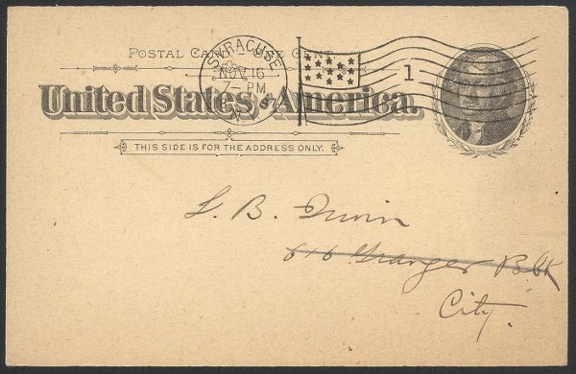 POSTAL CARD — ONE CENT.
SYRACUSE
NOV 16
7 – PM
N.Y.
1
United States of America.
THIS SIDE IS FOR THE ADDRESS ONLY.
L. B.
616 Granger Blk
City.